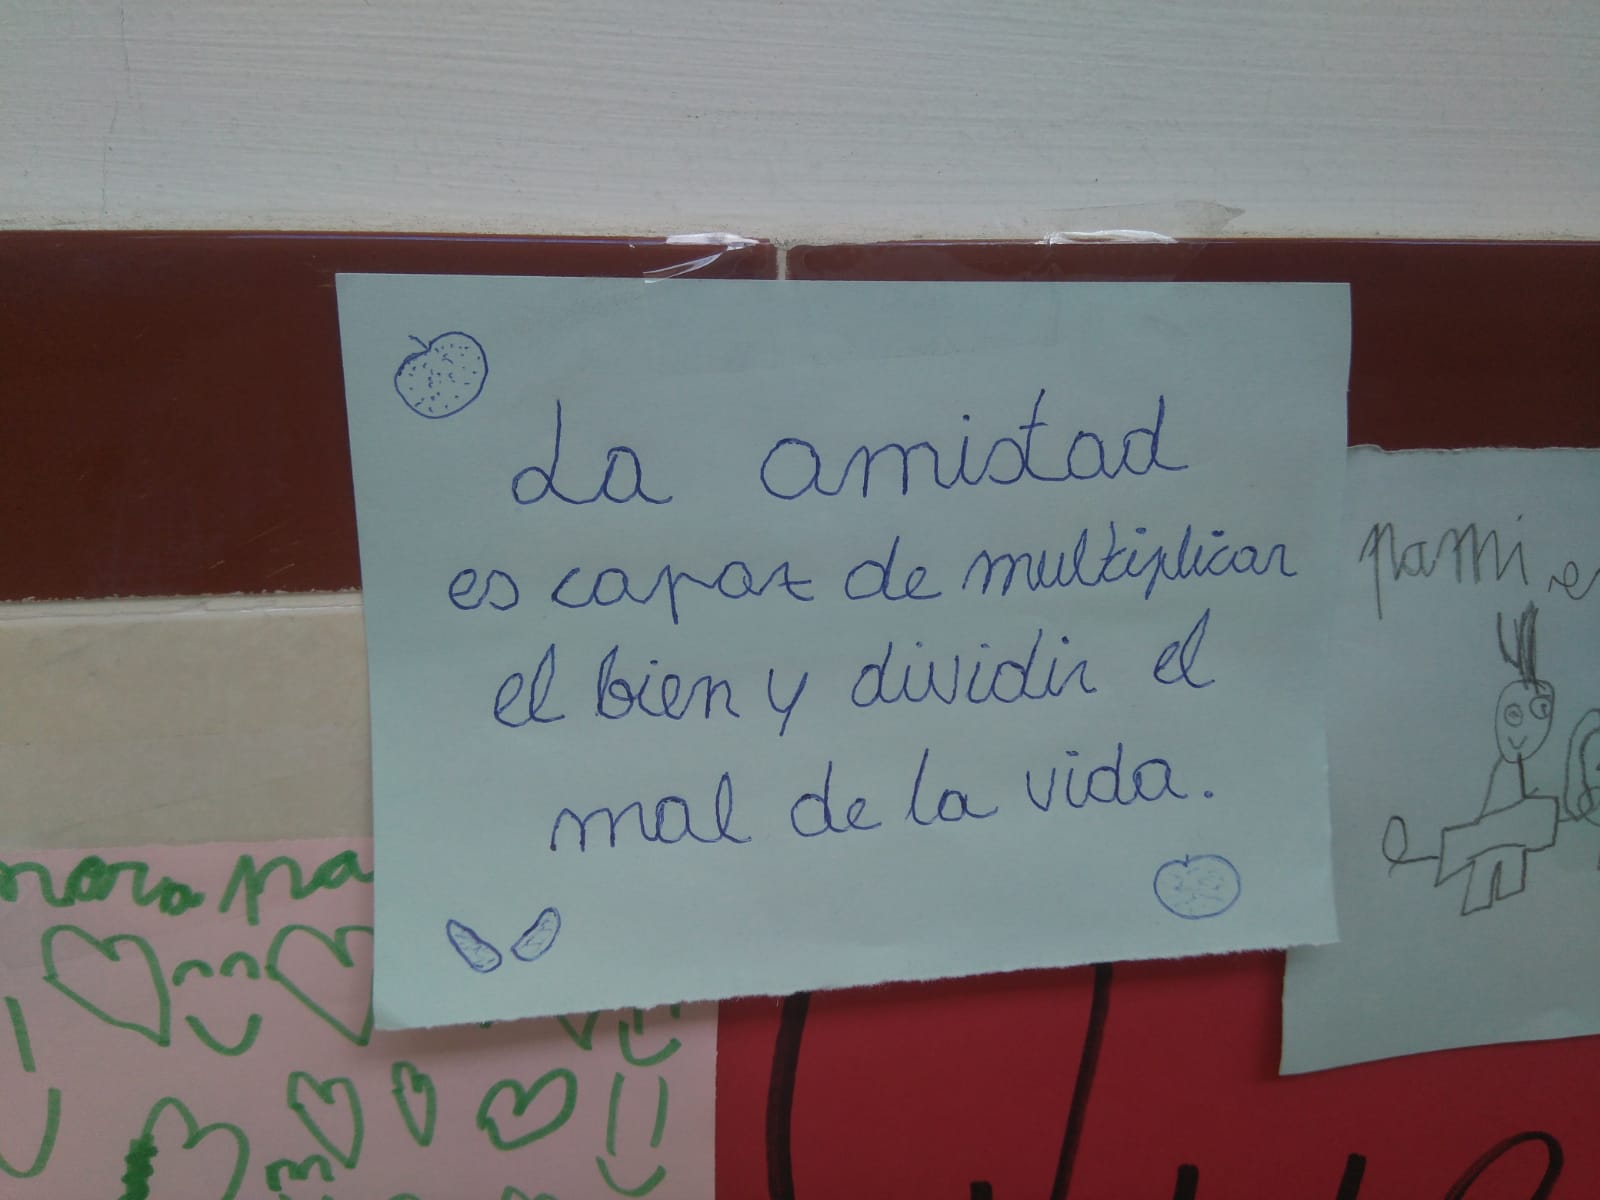 La amistad
es capaz de multiplicar
el bien y dividir el
mal de la vida.
para mi